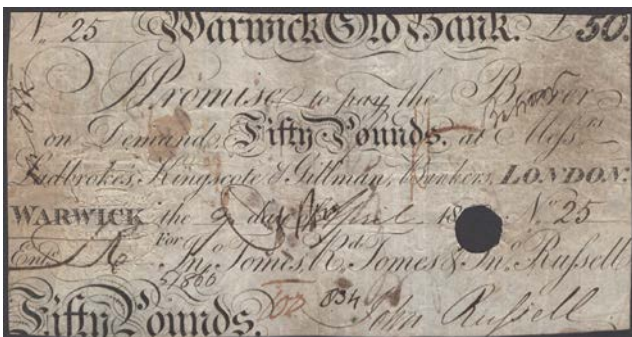 No. 25 Warwick Old Bank. £50.
I Promise to pay the Bearer
on Demand, Fifty Pounds. at Messrs
Ladbrokes, Kingscote & Gillman, Bankers, LONDON.
WARWICK the 9 day April 18 No. 25
For
Entd. Jno. Tomes, Rd. Tomes & Jno. Russell
51866
Fifty Pounds. 834 John Russell